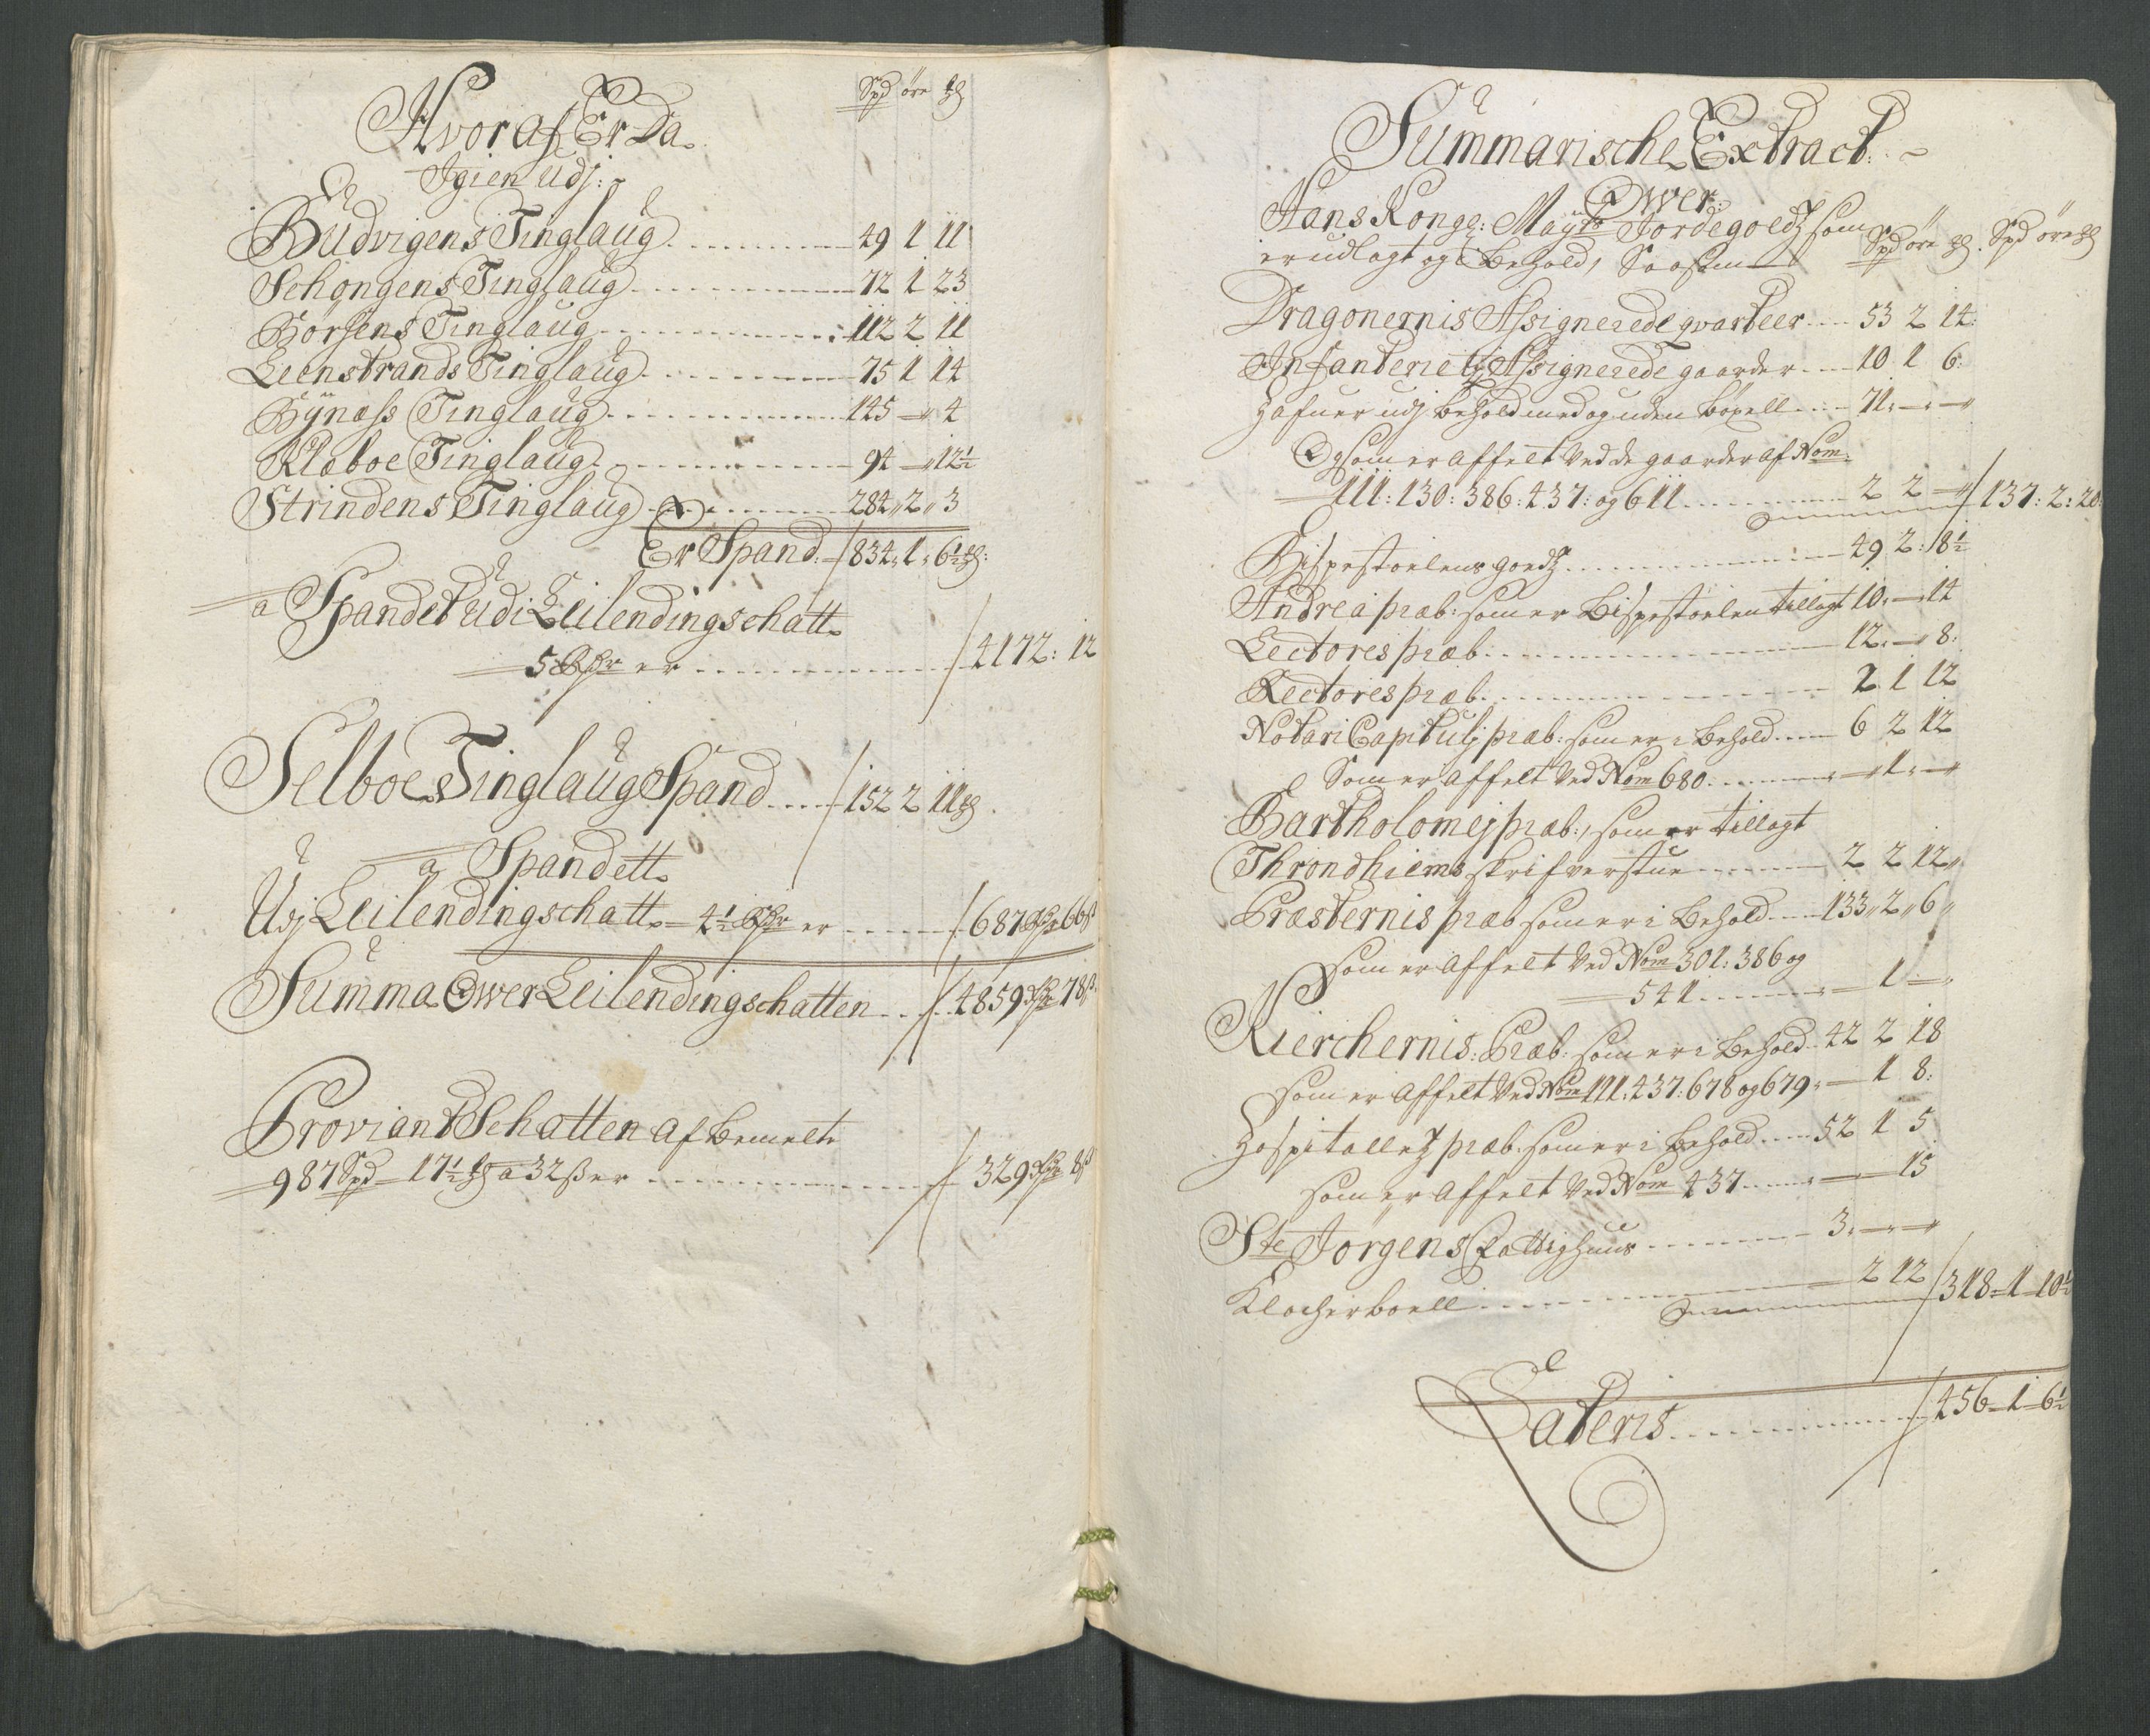 Spd öre mg
Hvoraf Er Da
Igien udj:
Budvigens Tinglaug 49 1 11
Schongens Tinglaug 72 1 23
Börsens Tinglaug 112 2 11
Leenstrands Tinglaug 75 1 14
Bÿnæss Tinglaug 145 — 4
Klæboe Tinglaug 94 — 12½
Strindens Tinglaug 284 2 3
Er Spand 834: 1: 6½
a Spandet udi Leilendingschatt
5 er 4172: 12
Selboe Tinglaug Spand 152 2 11
a Spandett
Udj Leilendingschatt 4½ er 687 66
Summa Ower Leilendingschatten 4859 78
Proviant Schatten af bemelte
987 Spd 17½ a 32 ß er 329 8
Summarische Extract
Ower
Hans Konge: Mayts Jordegoedz som
er udlagt og i Behold, Saasom Spd öre. Spd öre
Dragonernis Assignerede qvarteer 53 2 14
Infanteriets Assignerede gaarder 10 1 6
Hafuer udj behold med og uden böxell 71
Og som er affelt ved de gaarder af Nom:
111: 130: 386: 437: og 611 2 2 — 137: 2: 20
Bispestoelens goedz 49 2: 8½
Andreæ præb: som er Bispestoelen tillagt 10 — 14
Lectores præb. 12 — 8
Rectores præb. 2 1 12
Notari Capitulj præb: som er i behold 6 2 12
Som er affelt ved Nom 680 — 1 —
Bartholomej præb:, som er tillagt
Throndhiems skrifverstue 2 2 12
Præsternis præb som er i behold 133 2 6
som er affelt ved Nom 301: 386 og
541 — 1 —
Kierchernis: Præb: som er i behold 42 2 18
som er affelt ved Nom 111: 437: 678 og 679 — 1 8
Hospitallez præb: som er i behold 52 1 5
som er affelt ved Nom 437 — 15
Ste Jörgens Fattighuus 3 — —
Klocherboell 2 12 318 1 10½
Lateris 456 1 6½